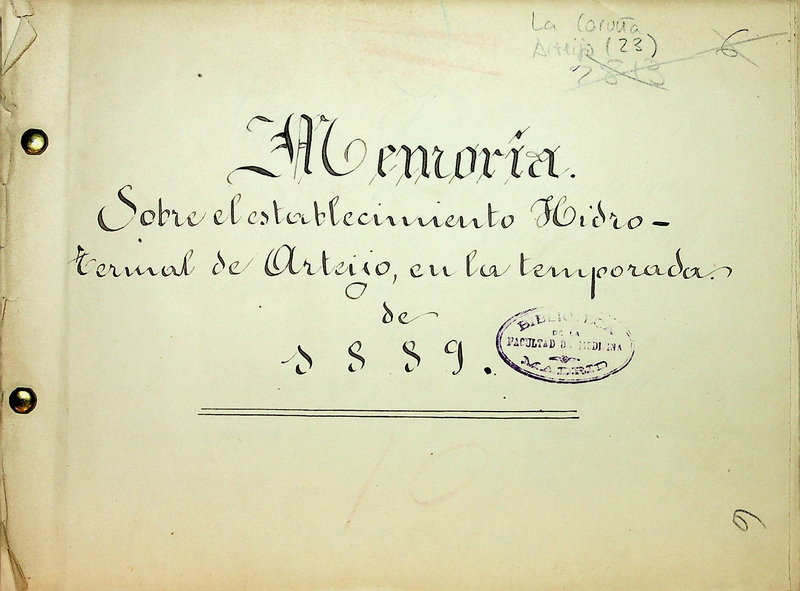 La Coruña
Arteijo (23) 6
2813
Memoria.
Sobre el establecimiento Hidro-
termal de Arteijo, en la temporada
de
1889.
BIBLIOTECA
DE LA
FACULTAD DE MEDICINA
MADRID
10
6